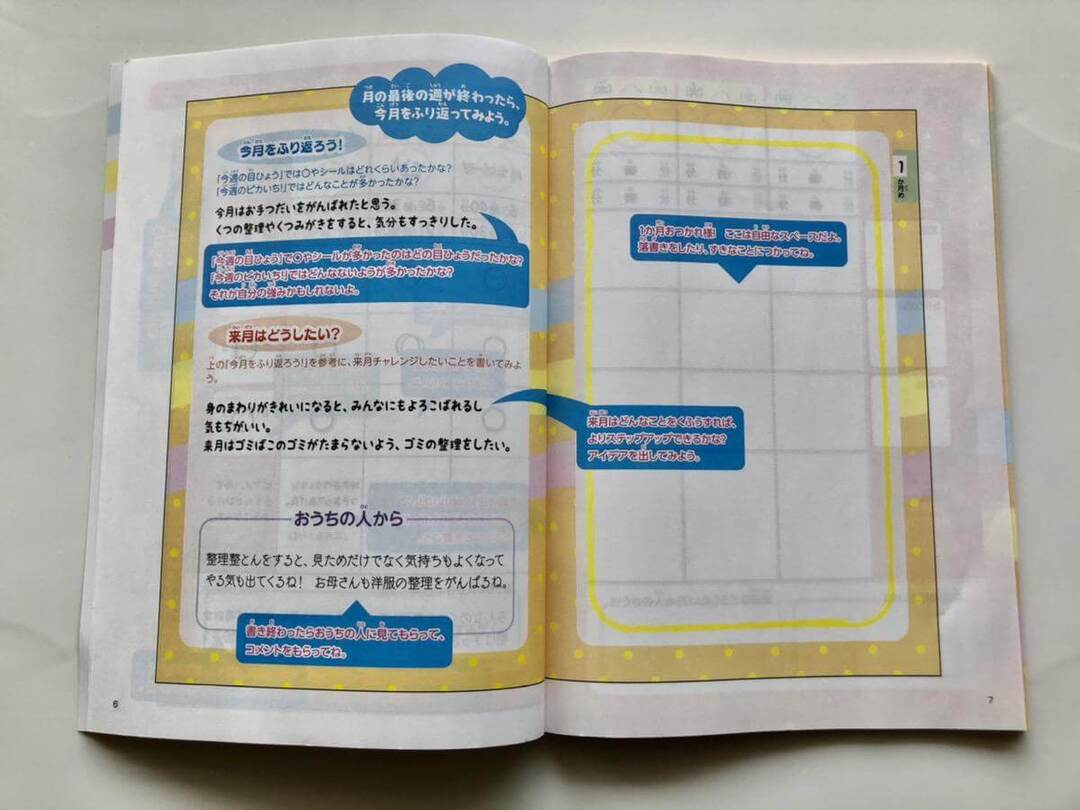 月の最後の週が終わったら、
今月をふり返ってみよう。
今月をふり返ろう!
「今週の目ひょう」では〇やシールはどれくらいあったかな?
「今週のピカいち!」ではどんなことが多かったかな?
今月はお手つだいをがんばれたと思う。
くつの整理やくつみがきをすると、気分もすっきりした。
「今週の目ひょう」で〇やシールが多かったのはどの目ひょうだったかな?
「今週のピカいち!」ではどんなないようが多かったかな?
それが自分の強みかもしれないよ。
来月はどうしたい?
上の「今月をふり返ろう!」を参考に、来月チャレンジしたいことを書いてみよ
う。
身のまわりがきれいになると、みんなにもよろこばれるし
気もちがいい。
来月はゴミばこのゴミがたまらないよう、ゴミの整理をしたい。
来月はどんなことをくふうすれば、
よりステップアップできるかな?
アイデアを出してみよう。
おうちの人から
整理整とんをすると、見ためだけでなく気持ちもよくなって
やる気も出てくるね! お母さんも洋服の整理をがんばるね。
書き終わったらおうちの人に見てもらって、
コメントをもらってね。
6
1
か月め
1か月おつかれ様! ここは自由なスペースだよ。
落書きをしたり、すきなことにつかってね。
7